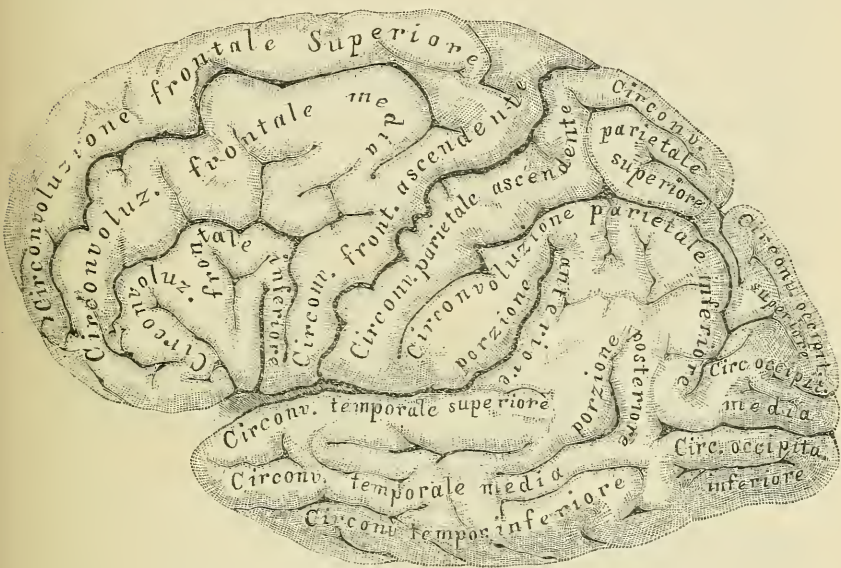 Circonvoluzione frontale Superiore
Circonvoluz. frontale media
Circonvoluz. frontale inferiore
Circonv. front. ascendente
Circonv. parietale ascendente
Circonv. parietale superiore
Circonvoluzione parietale inferiore
porzione anteriore
porzione posteriore
Circonv. occipit. superiore
Circ. occipit. media
Circ. occipita inferiore
Circonv. temporale superiore
Circonv. temporale media
Circonv tempor. inferiore